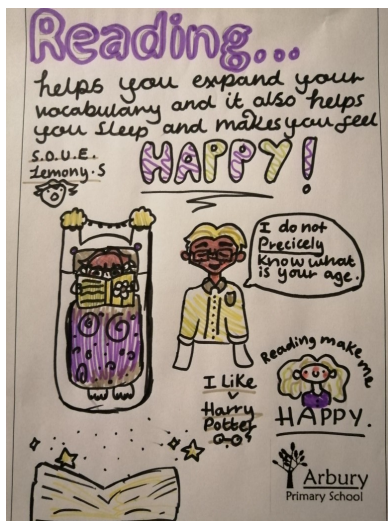 Reading...
helps you expand your
vocabulary and it also helps
you sleep and makes you feel
HAPPY!
S.O.U.E.
Lemony.S
I do not
Precicely
Know what
is your age.
Reading make me
HAPPY.
I Like
Harry
Potter
Arbury
Primary School